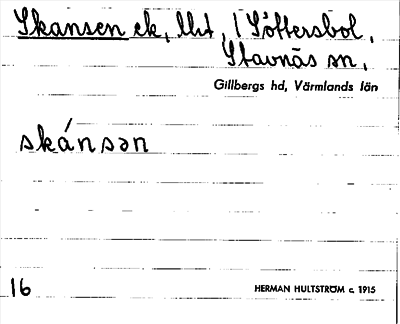 Skansen ek, llit, i Söttersbol,
Stavnäs sn,
Gillbergs hd, Värmlands län
skánsən
16
HERMAN HULTSTRÖM c. 1915